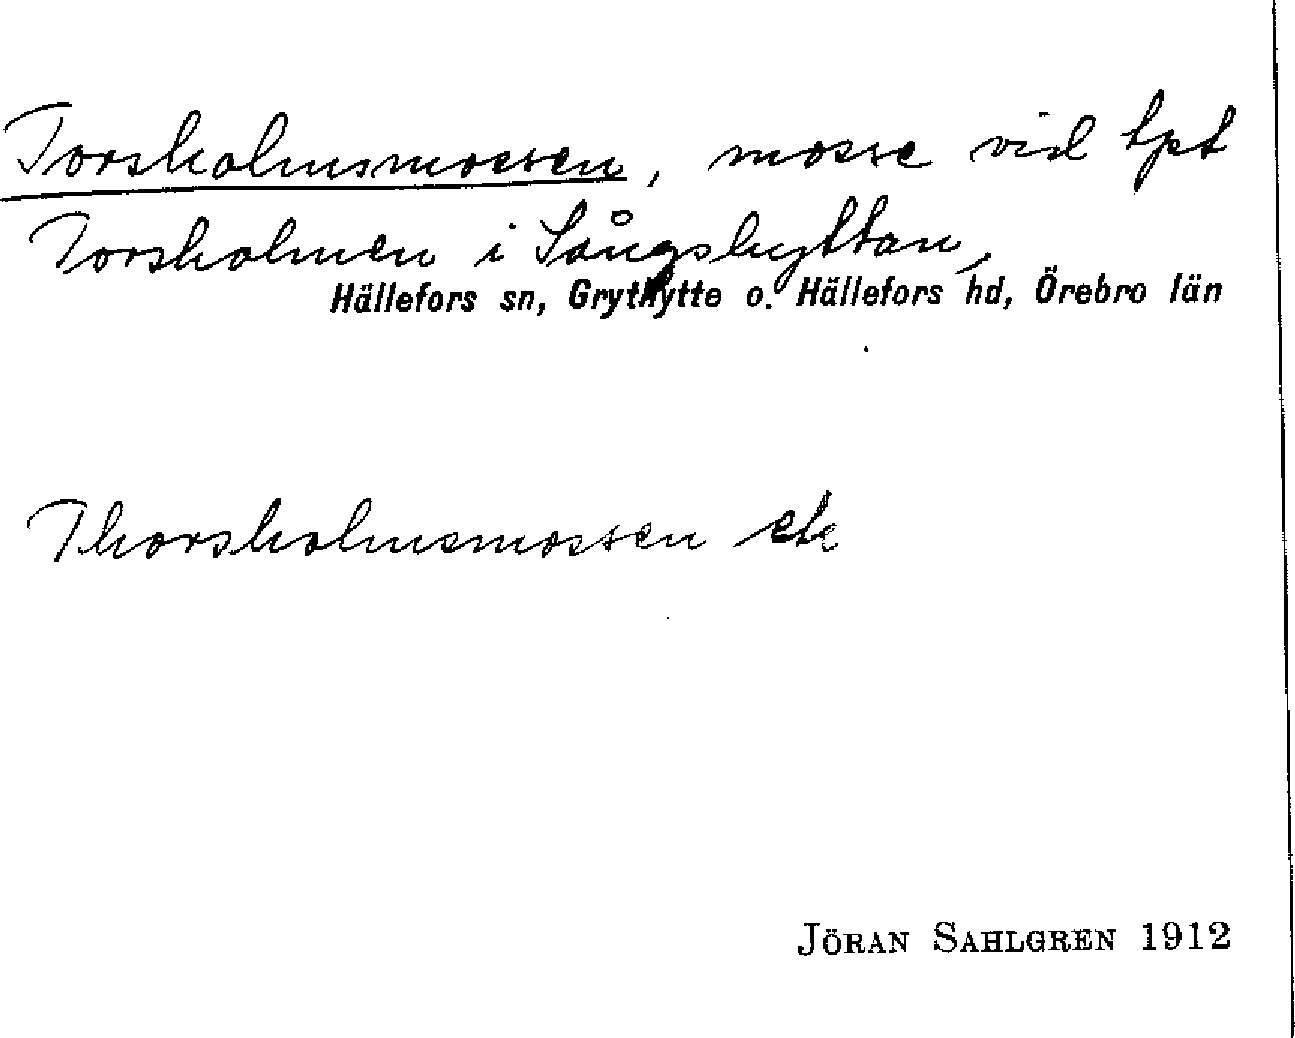 Torsholmsmossen, mosse vid tpt
Torsholmen i Sångshyttan,
Hällefors sn, Grythytte o. Hällefors hd, Örebro län
Thorsholmsmossen ek
JÖRAN SAHLGREN 1912